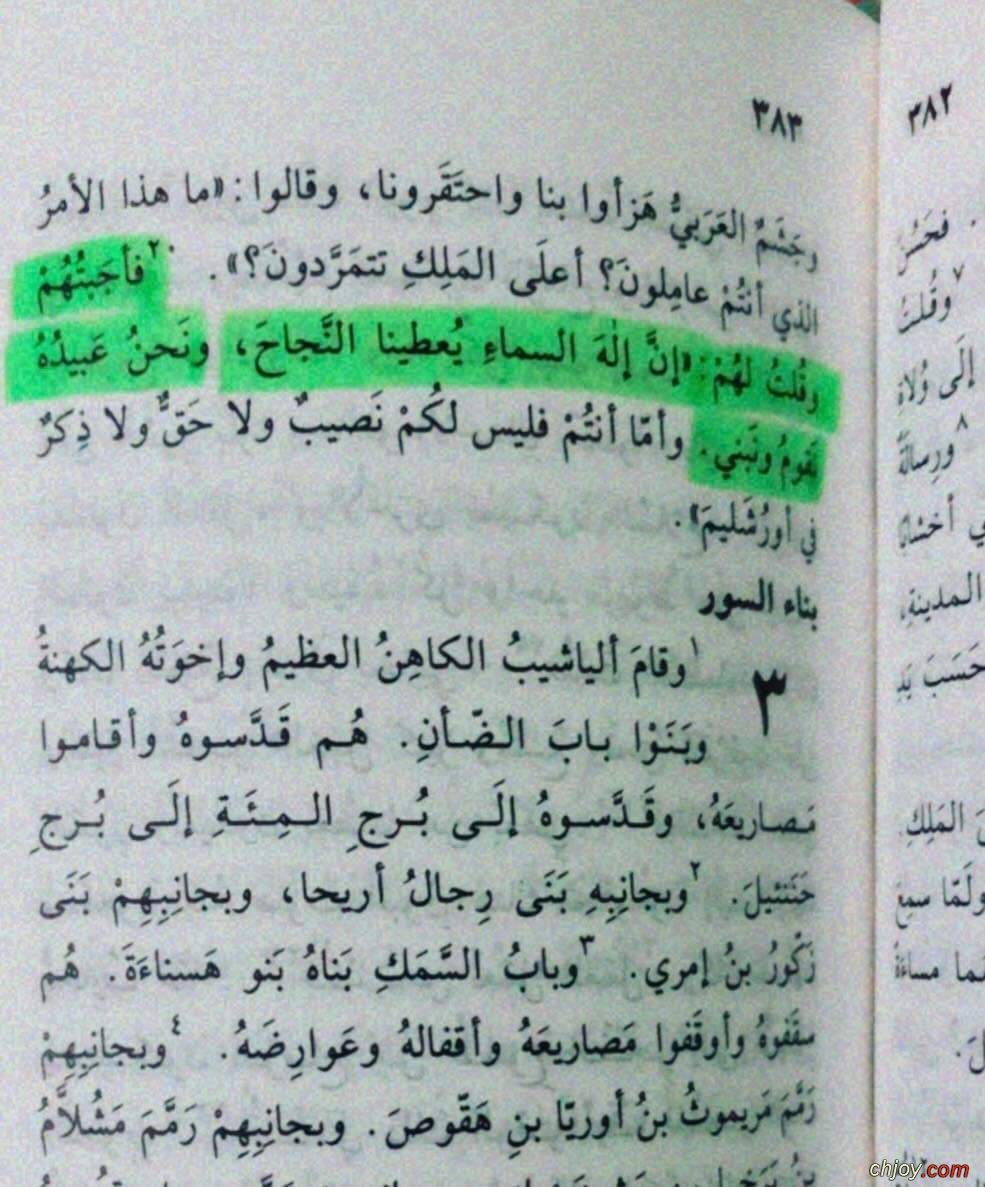 ٣٨٣
وجَشَمٌ العَرَبيُّ هَزأوا بنا واحتَقَرونا، وقالوا: «ما هذا الأمرُ
الذي أنتُمْ عامِلونَ؟ أعلَى المَلِكِ تتمَرَّدونَ؟». ٢٠فأجَبتُهُمْ
وقُلتُ لهُمْ: «إنَّ إلهَ السماءِ يُعطينا النَّجاحَ، ونَحنُ عَبيدُهُ
نَقومُ ونَبني. وأمّا أنتُمْ فليس لكُمْ نَصيبٌ ولا حَقٌّ ولا ذِكرٌ
في أورُشَليمَ».
بناء السور
٣ ١وقامَ ألياشيبُ الكاهِنُ العظيمُ وإخوَتُهُ الكهنةُ
وبَنَوْا بابَ الضّأنِ. هُم قَدَّسوهُ وأقاموا
مَصاريعَهُ، وقَدَّسوهُ إلَى بُرجِ المِئَةِ إلَى بُرجِ
حَنَنئيلَ. ٢وبجانِبِهِ بَنَى رِجالُ أريحا، وبجانِبِهِمْ بَنَى
زَكّورُ بنُ إمري. ٣وبابُ السَّمَكِ بَناهُ بَنو هَسناءَةَ. هُم
سقَفوهُ وأوقَفوا مَصاريعَهُ وأقفالهُ وعَوارِضَهُ. ٤وبجانِبِهِمْ
رَمَّمَ مَريموثُ بنُ أوريّا بنِ هَقّوصَ. وبجانِبِهِمْ رَمَّمَ مَشُلاَّمُ
٣٨٢
٧وقُلتُ
إلَى وُلاةِ
٨ورِسالَةً
المدينةِ،
حَسَبَ يَدِ
المَلِكِ
ولَمّا سمِعَ
مساءَةً
chjoy.com